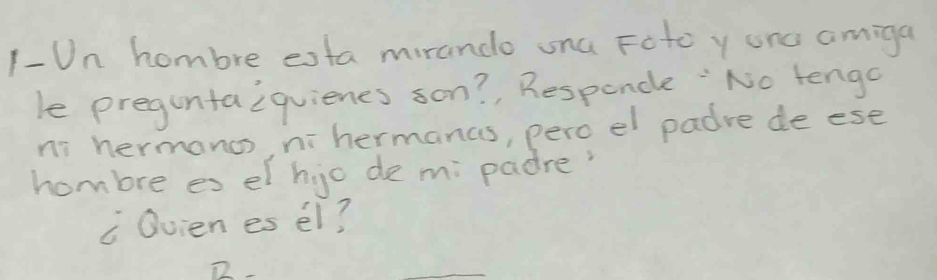 1-Un hombre esta mirando una Foto y una amiga
le pregunta ¿quienes son?, Responde "No tengo
ni hermanos, ni hermanas, pero el padre de ese
hombre es el hijo de mi padre"
¿Quien es él?
R-